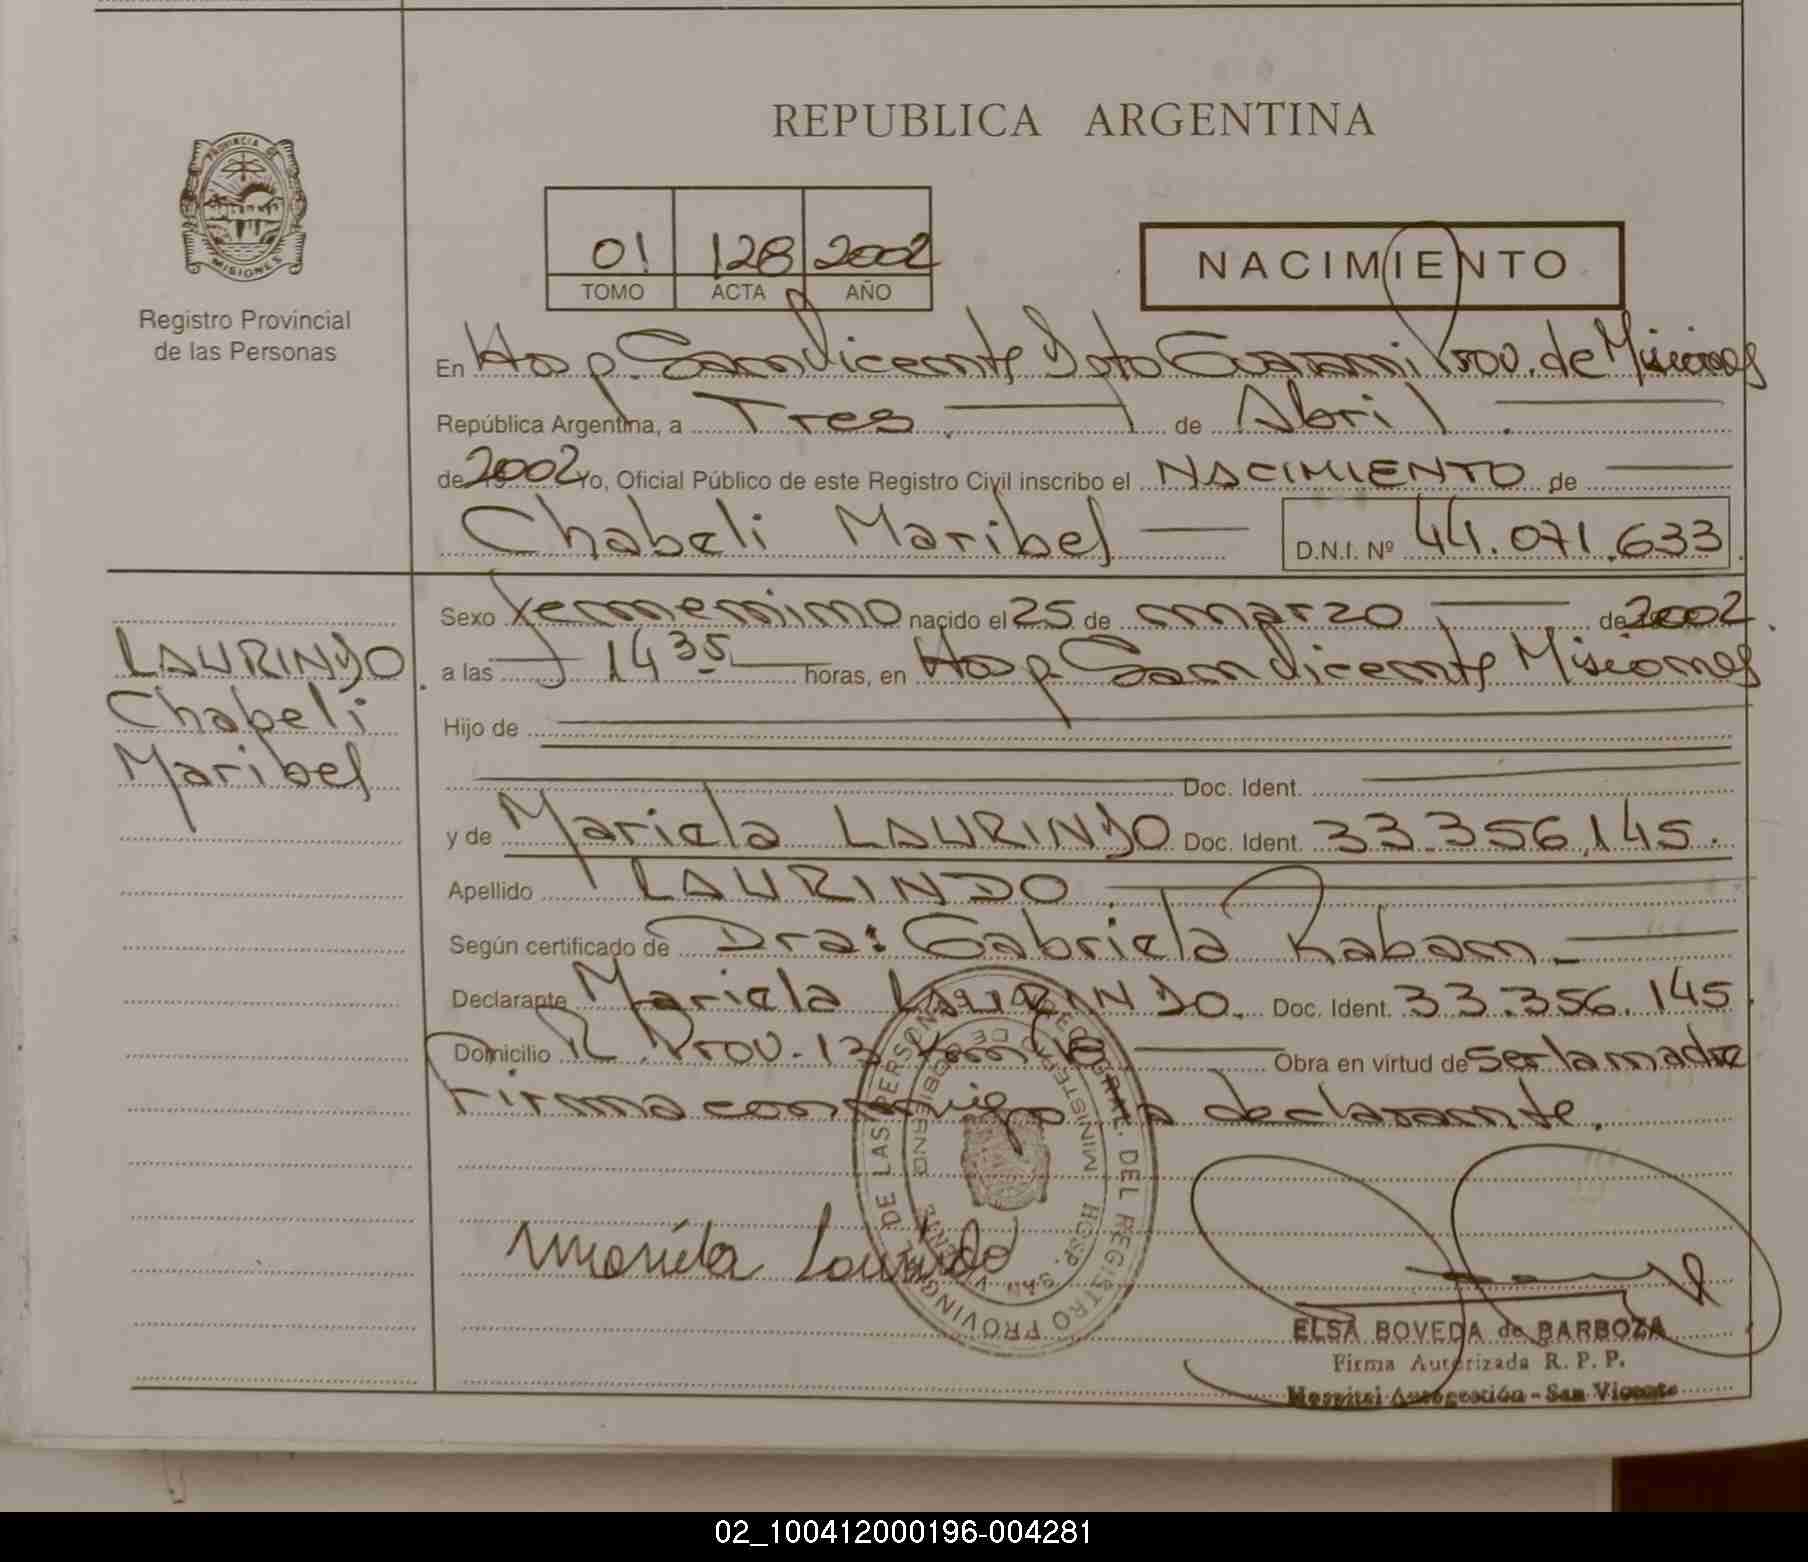 REPUBLICA ARGENTINA
PROVINCIA DE MISIONES
Registro Provincial
de las Personas
01 128 2002
TOMO ACTA AÑO
NACIMIENTO
En Hosp. San Vicente Dpto Guaraní Prov. de Misiones
República Argentina, a Tres de Abril
de 2002 Yo, Oficial Público de este Registro Civil inscribo el NACIMIENTO de
Chabeli Maribel D.N.I. Nº 44.071.633
LAURINDO
Chabeli
Maribel
Sexo femenino nacido el 25 de marzo de 2002.
a las 14 35 horas, en Hosp San Vicente Misiones
Hijo de
Doc. Ident.
y de Mariela LAURINDO Doc. Ident. 33.356.145.
Apellido LAURINDO
Según certificado de Dra: Gabriela Raban
Declarante Mariela LAURINDO. Doc. Ident. 33.356.145
Domicilio R. Prov. 13 Km 18 Obra en virtud de ser la madre
Firma conmigo la declarante.
Mariela Laurindo
GRAL. DEL REGISTRO PROVINCIAL DE LAS PERSONAS
MINISTERIO DE GOBIERNO
HOSP. SAN VICENTE
ELSA BOVEDA de BARBOZA
Firma Autorizada R. P. P.
Hospital Autogestión - San Vicente
02_100412000196-004281